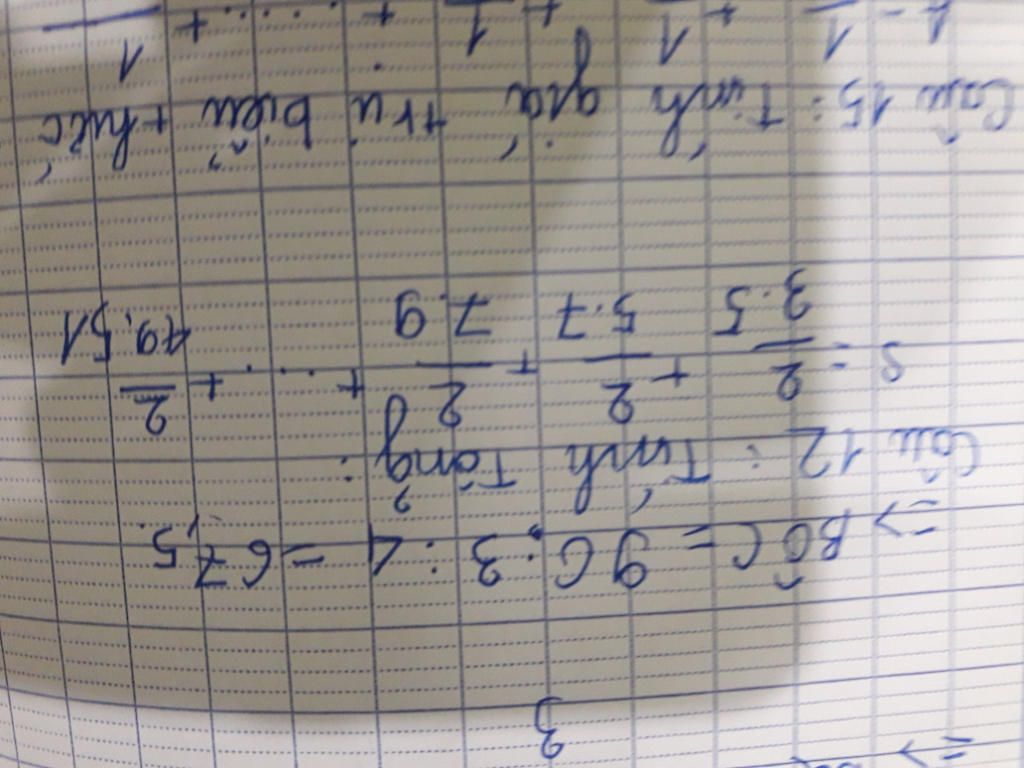 =>
3
=> BÔC = 90 . 3 : 4 = 67,5
Câu 12 : Tính Tổng :
S = 2/3.5 + 2/5.7 + 2/7.9 + ... + 2/49.51
Câu 15 : Tính giá trị biểu thức
A = 1 + 1 + 1 + ..... + 1